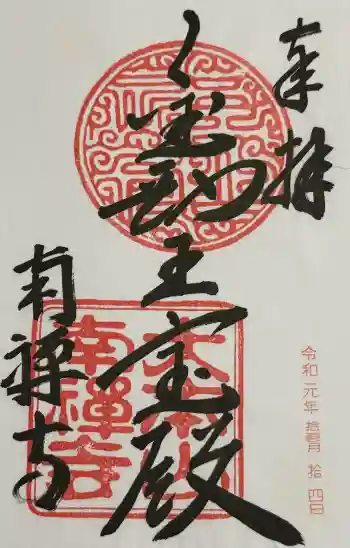 奉拝
金剛王宝殿
南禅寺
南禪寺
令和元年 拾月 拾四日